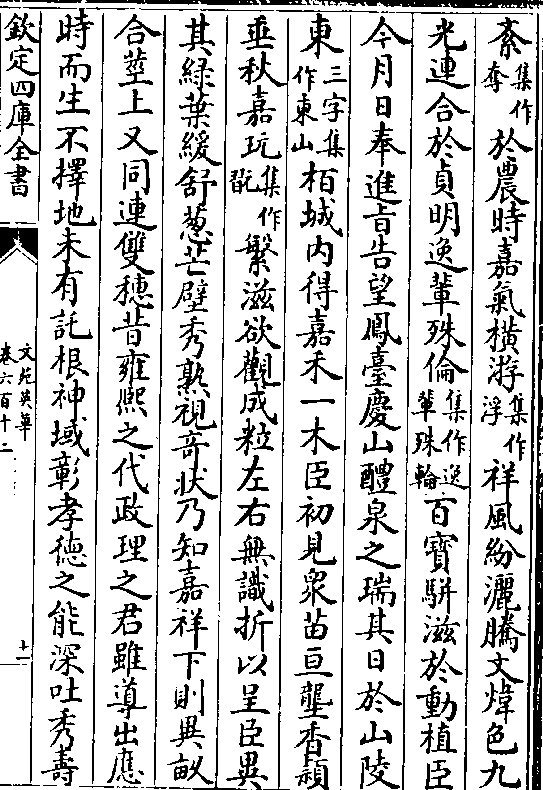 紊集作奪於農時嘉氣橫游集作浮祥風紛灑騰文煒色九
光連合於貞明逸輩殊倫集作逸輩殊輪百寶駢滋於動植臣
今月日奉進旨告望鳳臺慶山醴泉之瑞其日於山陵
東三字集作東山栢城內得嘉禾一木臣初見衆苗亘壟香頴
垂秋嘉玩集作翫繁滋欲觀成粒左右無識折以呈臣異
其緑葉緩舒葱芒壁秀熟視竒狀乃知嘉祥下則異畝
合莖上又同連雙穗昔雍熙之代政理之君雖導出應
時而生不擇地未有託根神域彰孝德之能深吐秀壽
欽定四庫全書
文苑英華
卷六百十二
十一